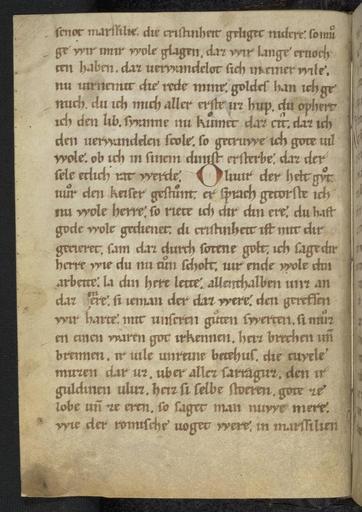 senot marssilie. die cristinheit geliget nidere. so mů
ge wir imir wole glagen. daz wir lange ernoch
ten haben. daz verwandelot sich in einer wile.
nu virnemit die rede mine. goldes han ich ge
nuch. du ich mich aller erste uz hup. du ophert
ich den lib. swanne nu kůmet daz cit. daz ich
den verwandelen scole. so getruwe ich gote vil
wole. ob ich in sinem dinist ersterbe. daz der
sele etlich rat werde. Oliuir der helt gůt.
uůr den keiser gestůnt. er sprach getorste ich
nu wole herre. so riete ich dir din ere. du hast
gode wole gedienet. di cristinheit ist mit dir
gezieret. sam daz durch sotene golt. ich sage dir
herre wie du nu tůn scholt. uir ende wole din
arbeite. la din here leite. allenthalben unz an
daz mere. si ieman der daz were. den gereffen
wir harte. mit unseren gůten swerten. si můz
en einen waren got irkennen. heiz brechen uň
brennen. ir uile unreine betehus. die tuvele
muzen dar uz. uber allez sarragůz. den ir
guldinen uluz. heiz si selbe stoeren. gote ze
lobe uň ze eren. so saget man nuwe mere.
wie der romische voget were. in marssilien